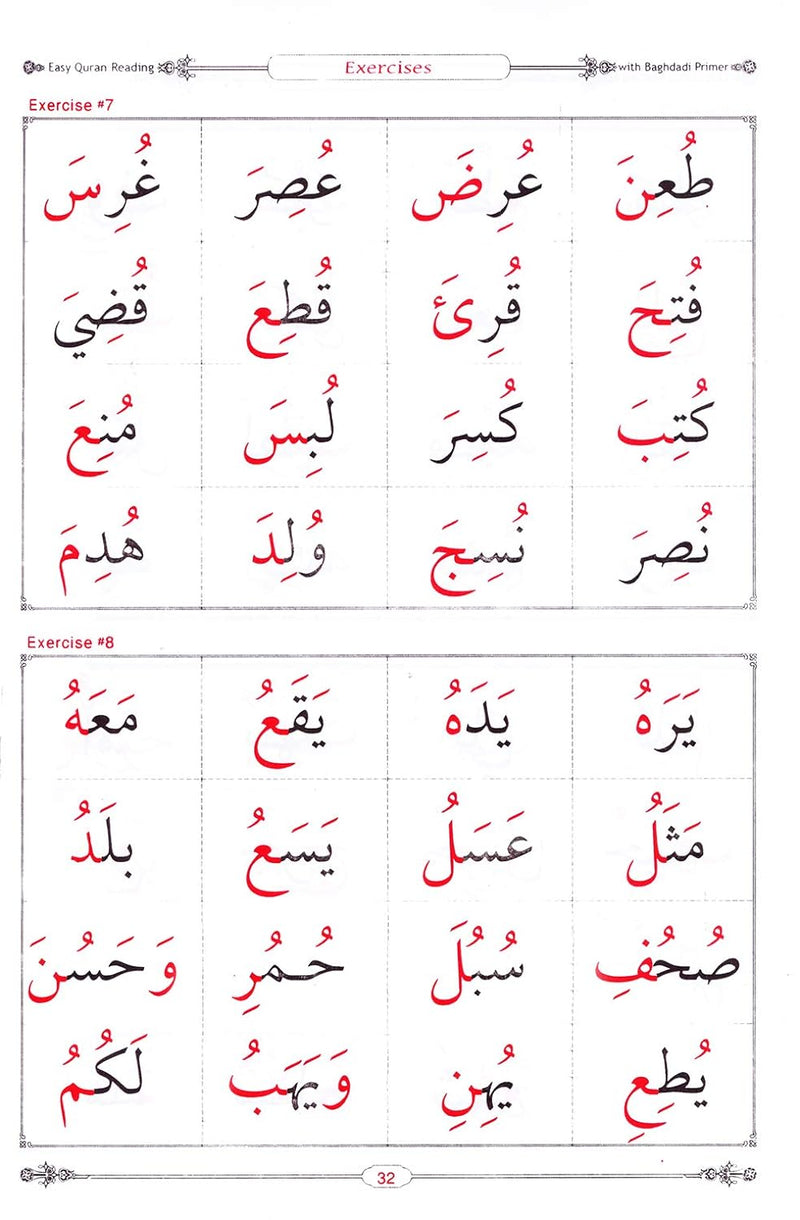 Easy Quran Reading Exercises with Baghdadi Primer
Exercise #7
طُعِنَ عُرِضَ عُصِرَ غُرِسَ
فُتِحَ قُرِئَ قُطِعَ قُضِيَ
كُتِبَ كُسِرَ لُبِسَ مُنِعَ
نُصِرَ نُسِجَ وُلِدَ هُدِمَ
Exercise #8
يَرَهُ يَدَهُ يَقَعُ مَعَهُ
مَثَلُ عَسَلُ يَسَعُ بَلَدُ
صُحُفِ سُبُلَ حُمُرِ وَحَسُنَ
يُطِعِ يُهِنِ وَيَهَبُ لَكُمُ
32